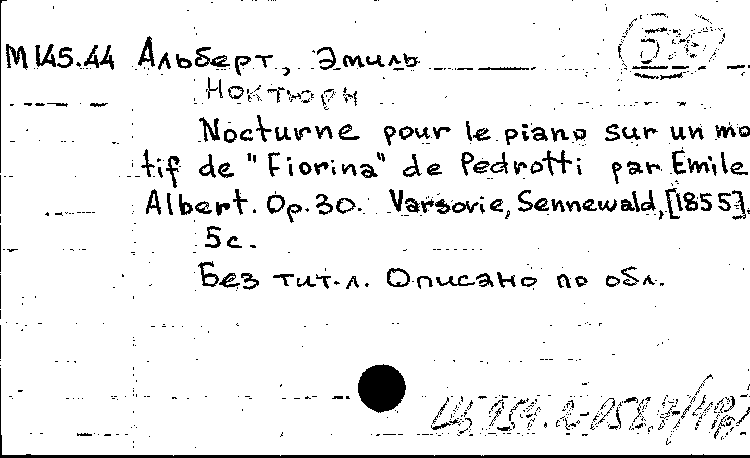 М 145.44 Альберт, Эмиль
Ноктюрн
Nocturne pour le piano sur un mo
tif de "Fiorina" de Pedrotti par Emile
Albert. Op. 30. Varsovie, Sennewald, [1855].
5 с.
Без тит. л. Описано по обл.